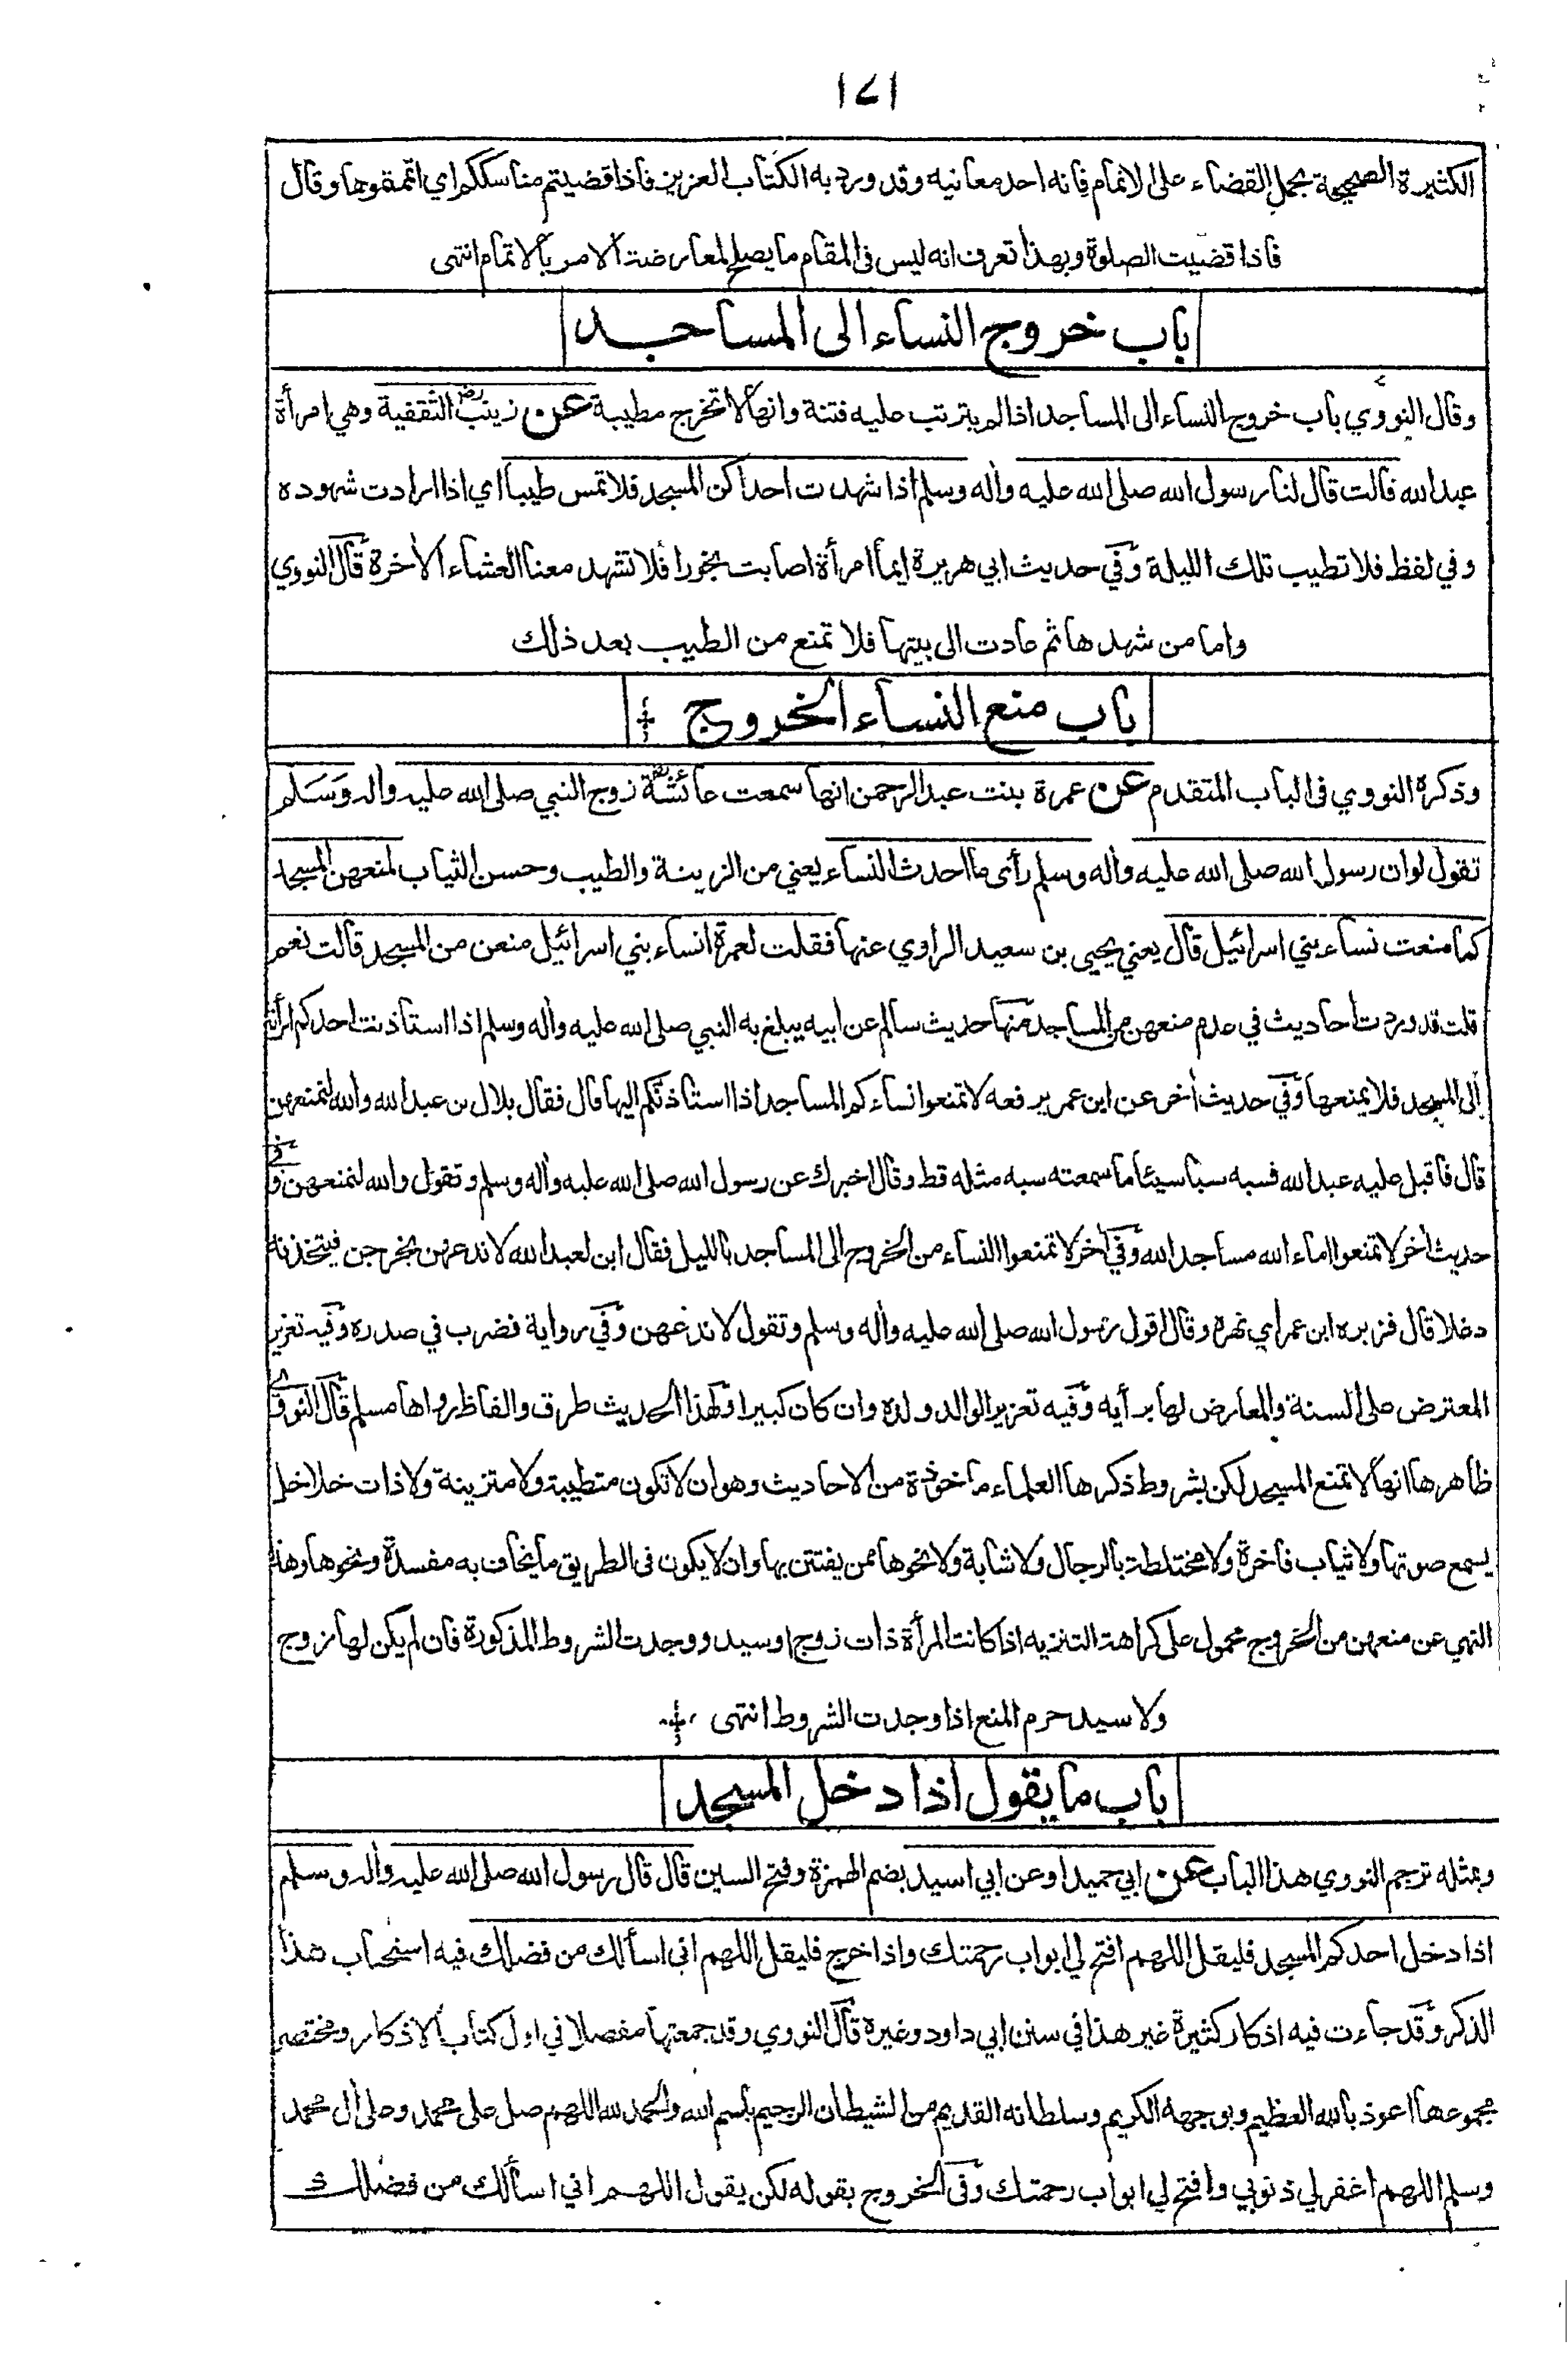 ١٧١
الكثيرة الصحيحة بحمل القضاء على الاتمام فانه احد معانيه وقد ورد به الكتاب العزيز فاذا قضيتم مناسككم اي اتممتموها وقال
فاذا قضيت الصلوة وبهذا تعرف انه ليس في المقام ما يصلح لمعارضة الامر بالاتمام انتهى
باب خروج النساء الى المساجد
وقال النووي باب خروج النساء الى المساجد اذا لم يترتب عليه فتنة وانها لا تخرج مطيبة عن زينب رض الثقفية وهي امرأة
عبد الله قالت قال لنا رسول الله صلى الله عليه واله وسلم اذا شهدت احداكن المسجد فلا تمس طيبا اي اذا ارادت شهوده
وفي لفظ فلا تطيب تلك الليلة وفي حديث ابي هريرة ايما امرأة اصابت بخورا فلا تشهد معنا العشاء الاخرة قال النووي
واما من شهدها ثم عادت الى بيتها فلا تمنع من الطيب بعد ذلك
باب منع النساء الخروج
وذكره النووي في الباب المتقدم عن عمرة بنت عبد الرحمن انها سمعت عائشة رض زوج النبي صلى الله عليه واله وسلم
تقول لو ان رسول الله صلى الله عليه واله وسلم رأى ما احدث النساء يعني من الزينة والطيب وحسن الثياب لمنعهن المسجد
كما منعت نساء بني اسرائيل قال يعني يحيى بن سعيد الراوي عنها فقلت لعمرة انساء بني اسرائيل منعن من المسجد قالت نعم
قلت قد وردت احاديث في عدم منعهن من المساجد منها حديث سالم عن ابيه يبلغ به النبي صلى الله عليه واله وسلم اذا استاذنت احدكم امرأته
الى المسجد فلا يمنعها وفي حديث اخر عن ابن عمر يرفعه لا تمنعوا نساءكم المساجد اذا استاذنكم اليها قال فقال بلال بن عبد الله والله لنمنعهن
قال فاقبل عليه عبد الله فسبه سبا سيئا ما سمعته سبه مثله قط وقال اخبرك عن رسول الله صلى الله عليه واله وسلم وتقول والله لنمنعهن وفي
حديث اخر لا تمنعوا اماء الله مساجد الله وفي اخر لا تمنعوا النساء من الخروج الى المساجد بالليل فقال ابن لعبد الله لا ندعهن يخرجن فيتخذنه
دغلا قال فزبره ابن عمر اي نهره وقال اقول رسول الله صلى الله عليه واله وسلم وتقول لا ندعهن وفي رواية فضرب في صدره وفيه تعزير
المعترض على السنة والمعارض لها برأيه وفيه تعزير الوالد ولده وان كان كبيرا ولهذا الحديث طرق والفاظ رواها مسلم قال النووي
ظاهرها انها لا تمنع المسجد لكن بشروط ذكرها العلماء ماخوذة من الاحاديث وهو ان لا تكون متطيبة ولا متزينة ولا ذات خلاخل
يسمع صوتها ولا ثياب فاخرة ولا مختلطة بالرجال ولا شابة ولا نحوها ممن يفتتن بها وان لا يكون في الطريق ما يخاف به مفسدة ونحوها وهذا
النهي عن منعهن من الخروج محمول على كراهة التنزيه اذا كانت المرأة ذات زوج او سيد ووجدت الشروط المذكورة فان لم يكن لها زوج
ولا سيد حرم المنع اذا وجدت الشروط انتهى
باب ما يقول اذا دخل المسجد
وبمثله ترجم النووي هذا الباب عن ابي حميد او عن ابي اسيد بضم الهمزة وفتح السين قال قال رسول الله صلى الله عليه واله وسلم
اذا دخل احدكم المسجد فليقل اللهم افتح لي ابواب رحمتك واذا خرج فليقل اللهم اني اسألك من فضلك فيه استحباب هذا
الذكر وقد جاءت فيه اذكار كثيرة غير هذا في سنن ابي داود وغيره قال النووي وقد جمعتها مفصلا في اول كتاب الاذكار ومختصر
مجموعها اعوذ بالله العظيم وبوجهه الكريم وسلطانه القديم من الشيطان الرجيم بسم الله والحمد لله اللهم صل على محمد وعلى ال محمد
وسلم اللهم اغفر لي ذنوبي وافتح لي ابواب رحمتك وفي الخروج بقوله لكن يقول اللهم اني اسألك من فضلك